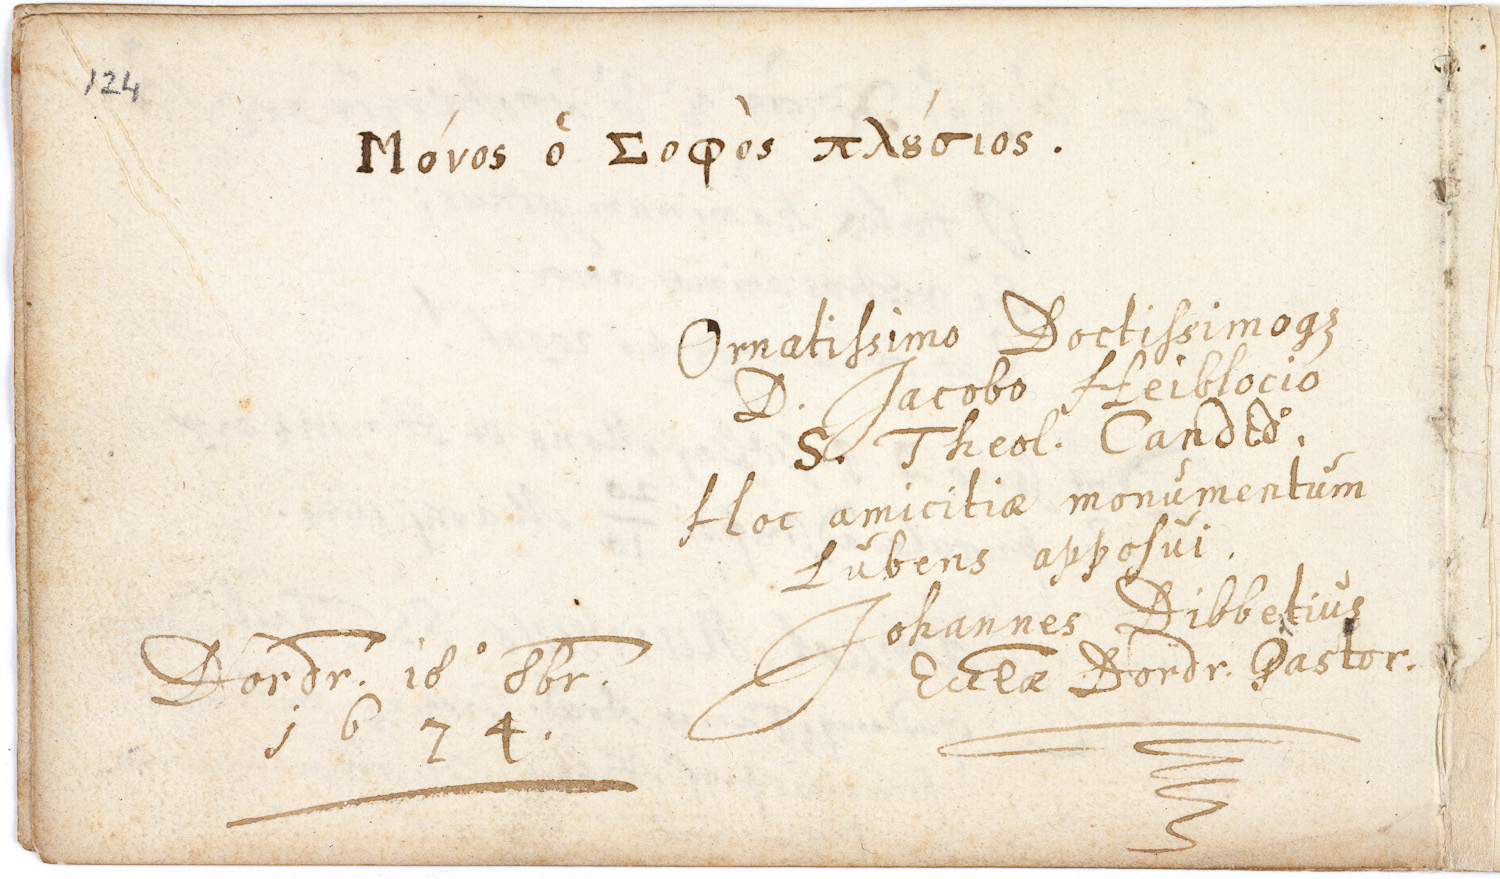 124
Μόνος ὁ Σοφὸς πλȣ́σιος.
Ornatissimo Doctissimoqꝫ
D. Jacobo Heiblocio
S. Theol. Candtō.
Hoc amicitiæ monumentum
Lubens apposui.
Johannes Dibbetius
Eccl̄æ Dordr. Pastor.
Dordr. 18° 8br.
1674.